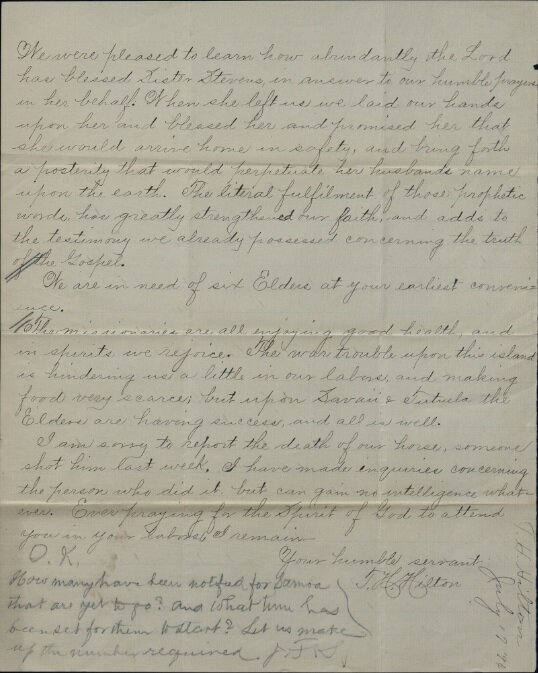 We were pleased to learn how abundantly the Lord
has blessed Sister Stevens, in answer to our humble prayers
in her behalf. When she left us we laid our hands
upon her and blessed her and promised her that
she would arrive home in safety, and bring forth
a posterity that would perpetuate her husbands name
upon the earth. The literal fulfilment of those prophetic
words, has greatly strengthened our faith, and adds to
the testimony we already possessed concerning the truth
of the Gospel.
We are in need of six Elders at your earliest conveni-
ence.
The missionaries are all enjoying good health, and
in spirits we rejoice. The war trouble upon this island
is hindering us a little in our labors, and making
food very scarce; but upon Savaii & Tutuila the
Elders are having success, and all is well.
I am sorry to report the death of our horse, someone
shot him last week. I have made inquiries concerning
the person who did it, but can gain no intelligence what-
ever. Ever praying for the Spirit of God to attend
you in your labors, I remain
Your humble servant
T. H. Hilton
O. K.
How many have been notified for Samoa
that are yet to go? and what time has
been set for them to start? Let us make
up the number required. J. F. S.
T. H. Hilton
July 17